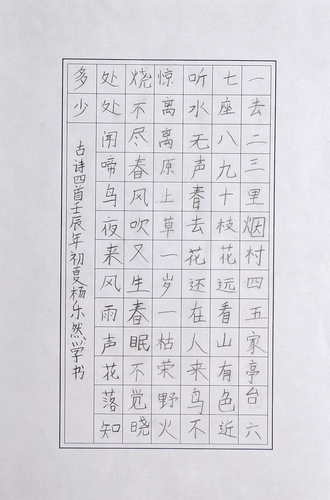 一去二三里烟村四五家亭台六
七座八九十枝花远看山有色近
听水无声春去花还在人来鸟不
惊离离原上草一岁一枯荣野火
烧不尽春风吹又生春眠不觉晓
处处闻啼鸟夜来风雨声花落知
多少
古诗四首壬辰年初夏杨乐然学书